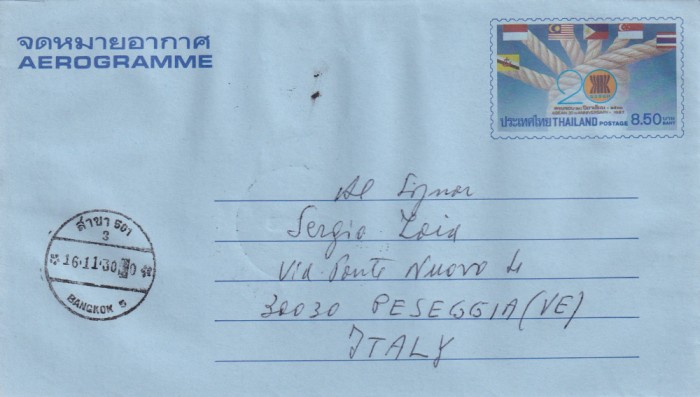 จดหมายอากาศ
AEROGRAMME
20
ASEAN
ASEAN 20th ANNIVERSARY - 1987
ประเทศไทย THAILAND POSTAGE 8.50 บาท BAHT
Al Signor
Sergio Zoia
Via Ponte Nuovo 4
30030 PESEGGIA (VE)
ITALY
สาขา 501
3
16.11.30
BANGKOK 5